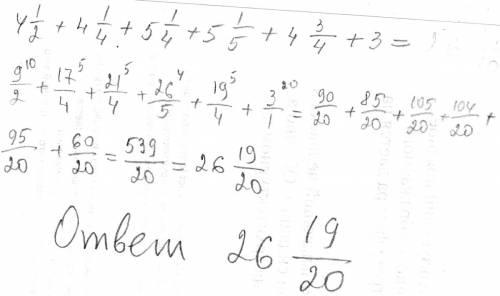 4 1/2 + 4 1/4 + 5 1/4 + 5 1/5 + 4 3/4 + 3 =
9/2 ¹⁰ + 17/4 ⁵ + 21/4 ⁵ + 26/5 ⁴ + 19/4 ⁵ + 3/1 ²⁰ = 90/20 + 85/20 + 105/20 + 104/20 +
95/20 + 60/20 = 539/20 = 26 19/20
Ответ 26 19/20